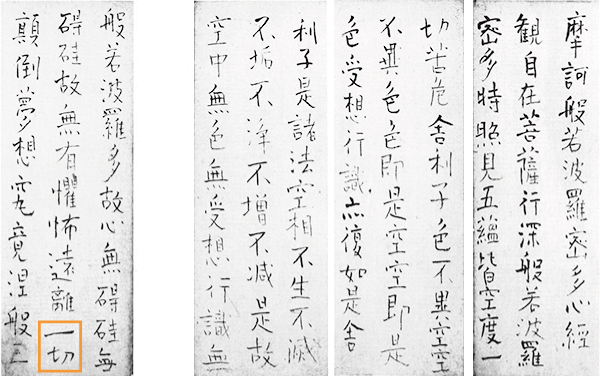 摩訶般若波羅密多心經
観自在菩薩行深般若波羅
密多時照見五蘊皆空度一
切苦危舍利子色不異空空
不異色色即是空空即是
色受想行識亦復如是舍
利子是諸法空相不生不滅
不垢不淨不増不減是故
空中無色無受想行識無
般若波羅多故心無碍硅無
碍硅故無有懼怖遠離一切
顛倒夢想究竟涅般三